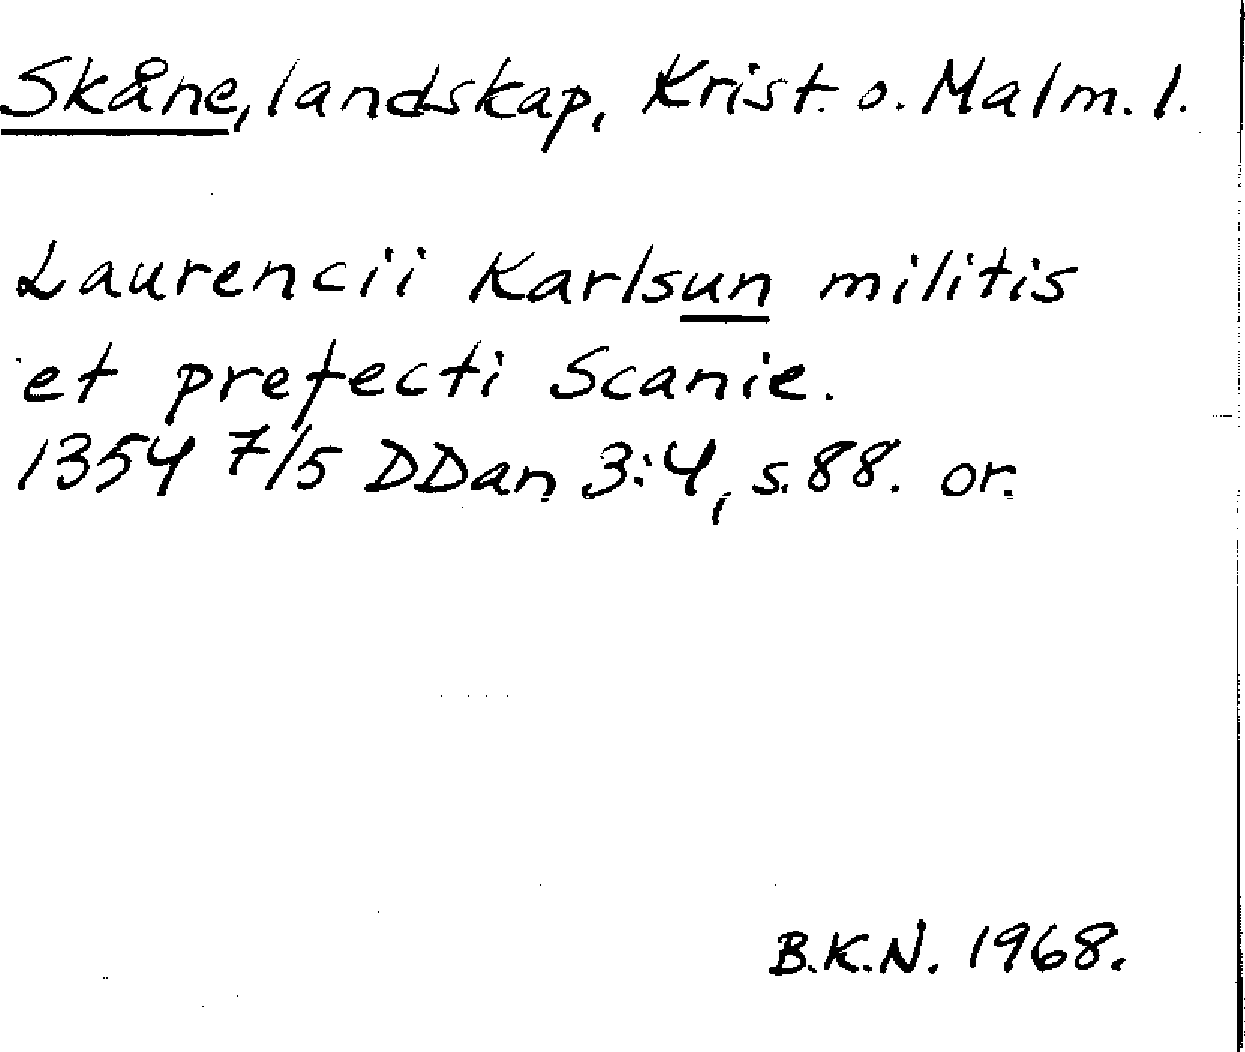 Skåne, landskap, Krist. o. Malm. l.
Laurencii Karlsun militis
et prefecti Scanie.
1354 7/5 DDan 3:4, s. 88. or.
B.K.N. 1968.